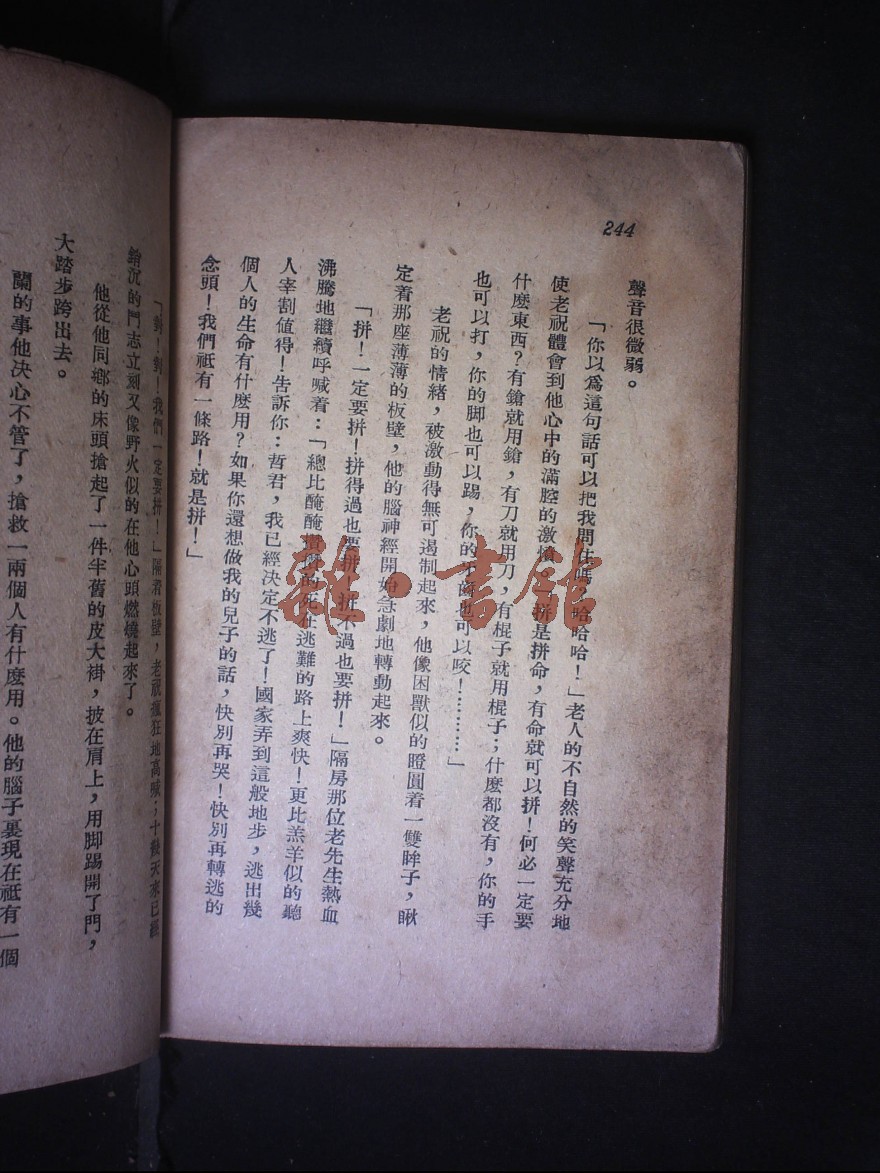 244
聲音很微弱。
「你以爲這句話可以把我問住嗎？哈哈哈！」老人的不自然的笑聲充分地
使老祝體會到他心中的滿腔的激憤「拼是拼命，有命就可以拼！何必一定要
什麼東西？有鎗就用鎗，有刀就用刀，有棍子就用棍子；什麼都沒有，你的手
也可以打，你的脚也可以踢，你的牙齒也可以咬！………」
老祝的情緒，被激動得無可遏制起來，他像困獸似的瞪圓着一雙眸子，瞅
定着那座薄薄的板壁，他的腦神經開始急劇地轉動起來。
「拼！一定要拼！拼得過也要拼，拼不過也要拼！」隔房那位老先生熱血
沸騰地繼續呼喊着：「總比醃醃的死在逃難的路上爽快！更比羔羊似的聽
人宰割值得！告訴你：哲君，我已經決定不逃了！國家弄到這般地步，逃出幾
個人的生命有什麽用？如果你還想做我的兒子的話，快別再哭！快別再轉逃的
念頭！我們祗有一條路！就是拼！」
「對！對！我們一定要拼！」隔着板壁，老祝瘋狂地高喊；十幾天來已經
銷沉的鬥志立刻又像野火似的在他心頭燃燒起來了。
他從他同鄉的床頭搶起了一件半舊的皮大褂，披在肩上，用脚踢開了門，
大踏步跨出去。
蘭的事他決心不管了，搶救一兩個人有什麼用。他的腦子裏現在祗有一個
雜·書館